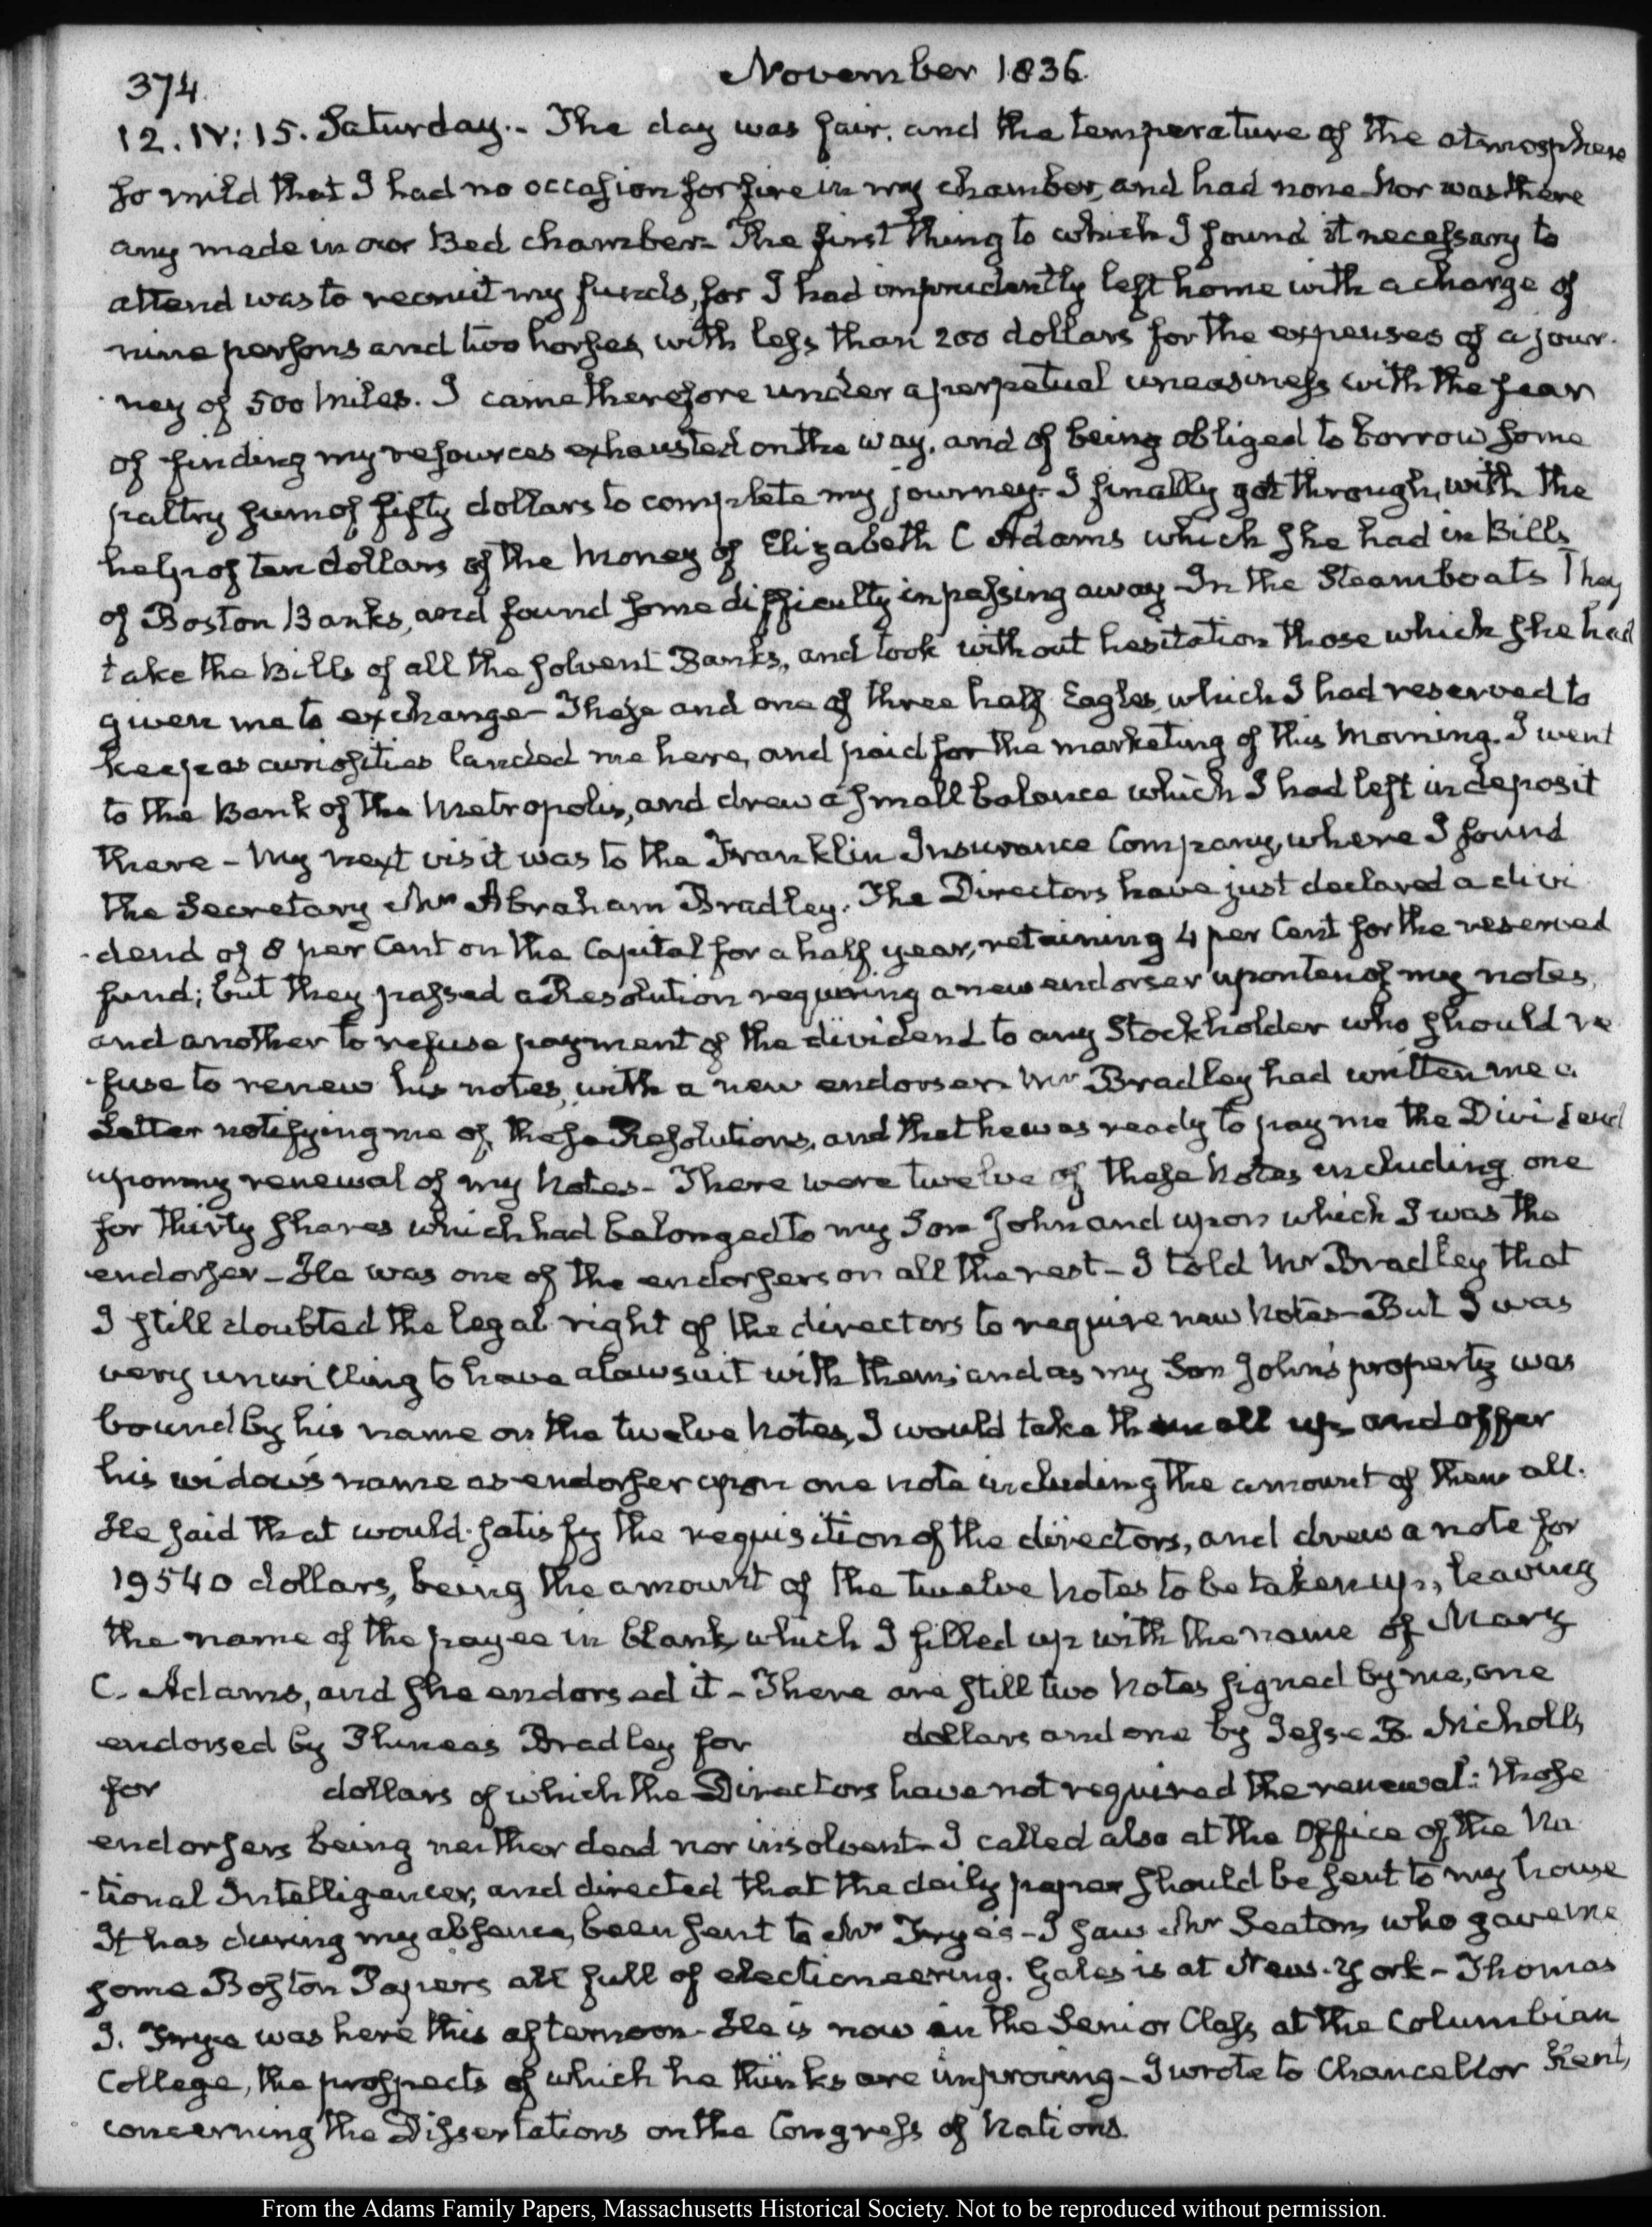 374.
November 1836.
12. IV: 15. Saturday.- The day was fair, and the temperature of the atmosphere
so mild that I had no occasion for fire in my chamber, and had none. Nor was there
any made in our Bed chamber- The first thing to which I found it necessary to
attend was to recruit my funds, for I had imprudently left home with a charge of
nine persons and two horses, with less than 200 dollars for the expenses of a jour-
-ney of 500 miles. I came therefore under a perpetual uneasiness with the fear
of finding my resources exhausted on the way, and of being obliged to borrow some
paltry sum of fifty dollars to complete my journey- I finally got through, with the
help of ten dollars of the money of Elizabeth C Adams which she had in Bills
of Boston Banks, and found some difficulty in passing away- In the Steamboats They
take the Bills of all the solvent Banks, and took without hesitation those which she had
given me to exchange- These and one of three half Eagles, which I had reserved to
keep as curiosities landed me here, and paid for the marketing of this Morning. I went
to the Bank of the Metropolis, and drew a small balance which I had left in deposit
there- My next visit was to the Franklin Insurance Company, where I found
the Secretary Mr Abraham Bradley. The Directors have just declared a divi
-dend of 8 per Cent on the Capital for a half year, retaining 4 per Cent for the reserved
fund; but they passed a Resolution requiring a new endorser upon ten of my notes,
and another to refuse payment of the dividend to any Stockholder who should re
-fuse to renew his notes, with a new endorser. Mr Bradley had written me a
Letter notifying me of these Resolutions, and that he was ready to pay me the Dividend
upon my renewal of my Notes- There were twelve of these Notes including one
for thirty shares which had belonged to my Son John and upon which I was the
endorser- He was one of the endorsers on all the rest- I told Mr Bradley that
I still doubted the legal right of the directors to require new Notes- But I was
very unwilling to have a lawsuit with them; and as my Son John's property was
bound by his name on the twelve Notes, I would take them all up and offer
his widow's name as endorser upon one note including the amount of them all.
He said that would satisfy the requisition of the directors, and drew a note for
19540 dollars, being the amount of the twelve Notes to be taken up, leaving
the name of the payee in blank, which I filled up with the name of Mary
C. Adams, and she endorsed it- There are still two Notes signed by me, one
endorsed by Phineas Bradley for dollars and one by Jesse B. Nicholls
for dollars of which the Directors have not required the renewal: those
endorsers being neither dead nor insolvent- I called also at the Office of the Na
-tional Intelligencer, and directed that the daily paper should be sent to my house
It has during my absence, been sent to Mr Frye's- I saw Mr Seaton, who gave me
some Boston Papers all full of electioneering. Gales is at New-York- Thomas
J. Frye was here this afternoon- He is now in the Senior Class at the Columbian
College, the prospects of which he thinks are improving- I wrote to Chancellor Kent,
concerning the Dissertations on the Congress of Nations.
From the Adams Family Papers, Massachusetts Historical Society. Not to be reproduced without permission.